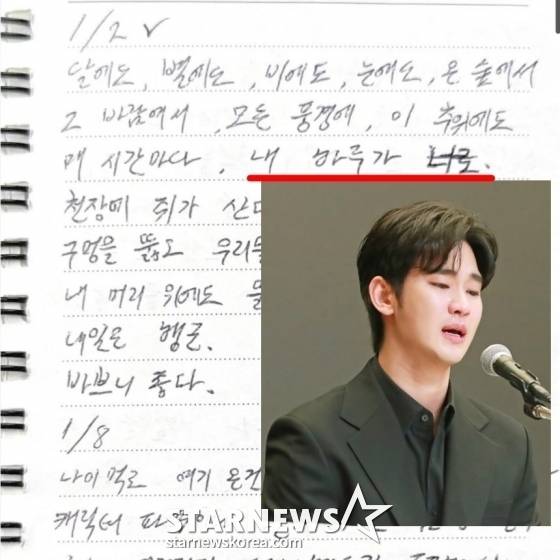 1/2 ✓
달에도, 별에도, 비에도, 눈에도, 온 숲에서
그 바람에서, 모든 풍경에, 이 추위에도
매 시간마다, 내 하루가 너로.
천장에 쥐가 산다
구멍을 뚫고 우리를
내 머리 위에도
내일은 행군.
바쁘니 좋다.
1/8
나이 먹고 여기 온건
캐릭터
STARNEWS
starnewskorea.com